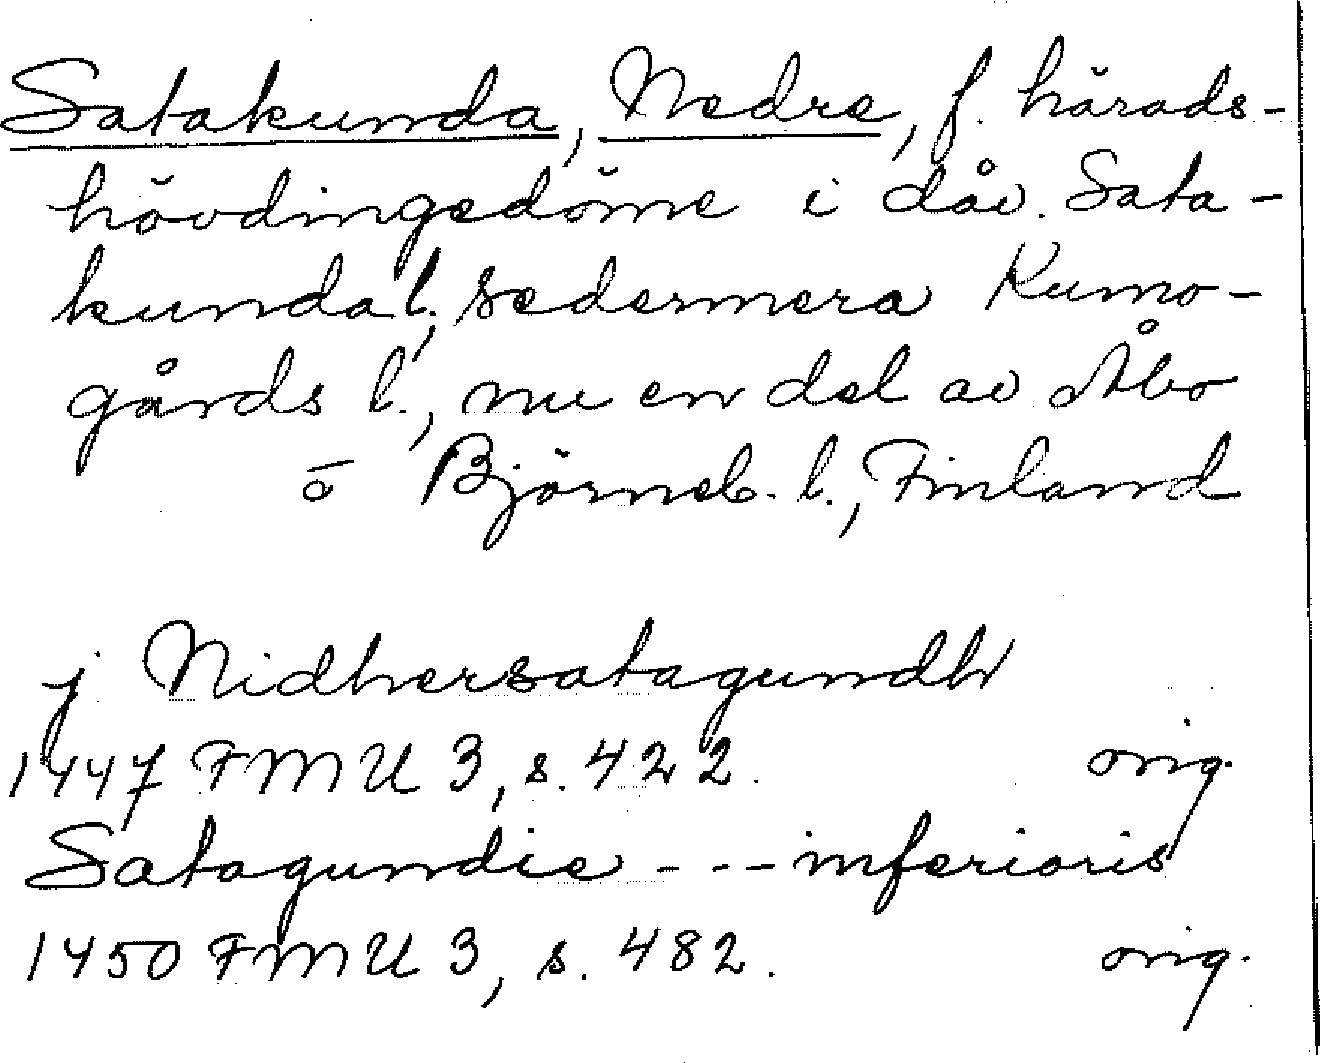 Satakunda, Nedre, f. härads-
hövdingedöme i dåv. Sata-
kunda l., sedermera Kumo-
gårds l., nu en del av Åbo
o Björneb. l., Finland
j Nidhersatagundh
1447 FMU 3, s. 422. orig.
Satagundie - - - inferioris
1450 FMU 3, s. 482. orig.